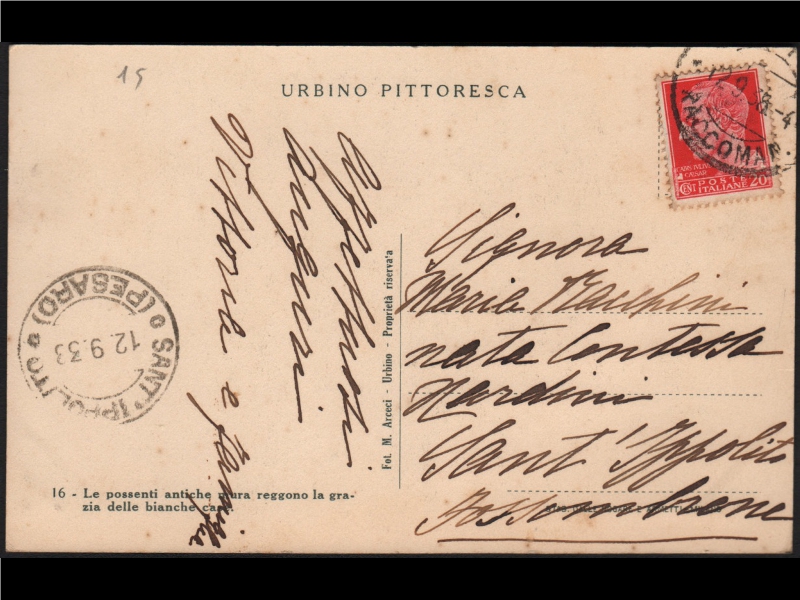 15
URBINO PITTORESCA
Affettuosi
auguri
Vittoria e famiglia
Signora
Maria Macchini
nata Contessa
Nardini
Sant'Ippolito
Fossombrone
Fot. M. Arceci - Urbino - Proprietà riservata
16 - Le possenti antiche mura reggono la gra-
zia delle bianche case.
SANT'IPPOLITO
(PESARO)
12.9.33
RACCOMAN
POSTE
ITALIANE
CENT 20